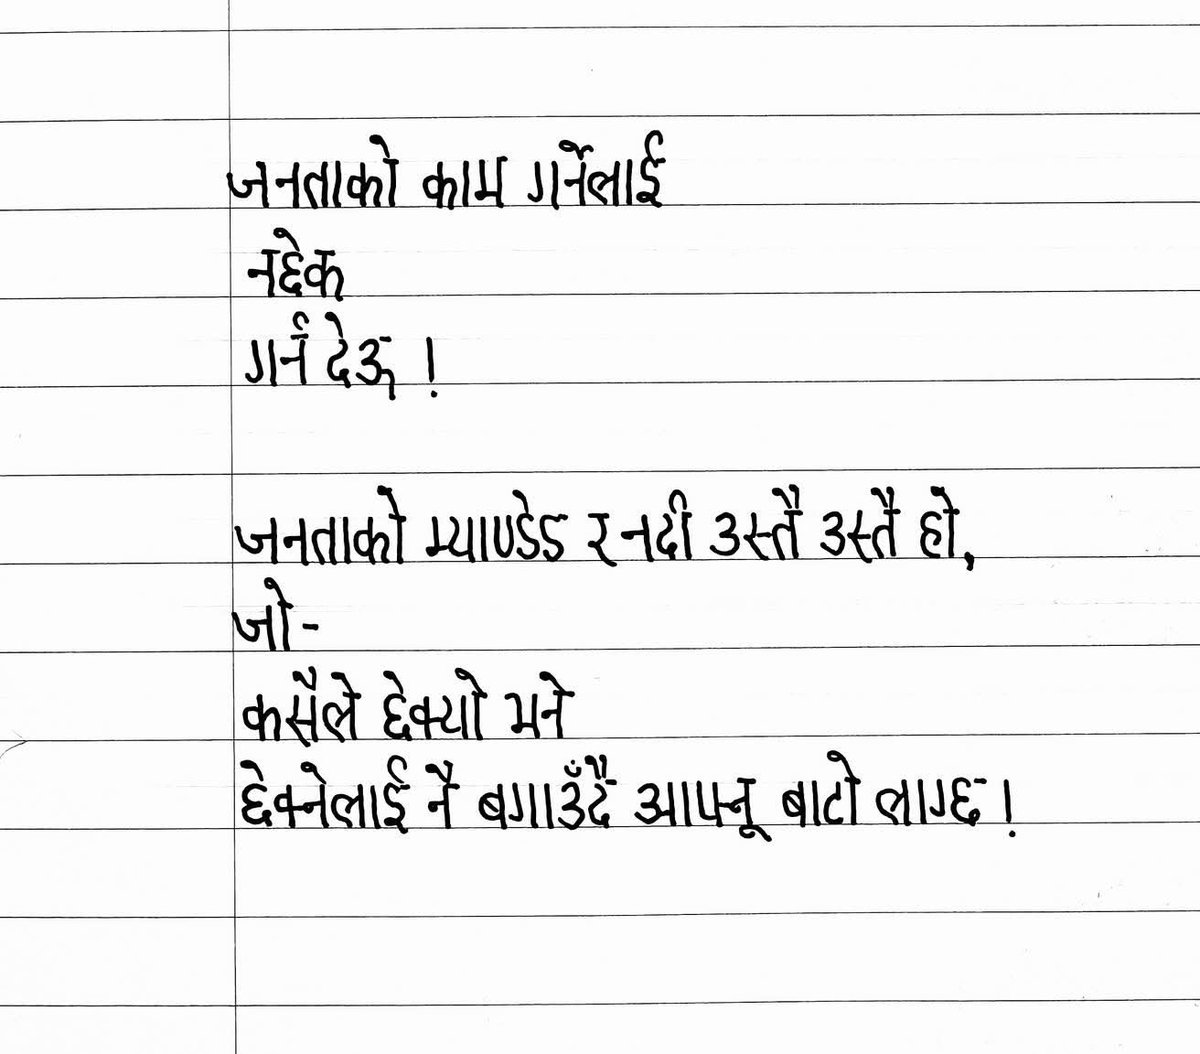 जनताको काम गर्नेलाई
नछेक
गर्न देऊ !
जनताको म्याण्डेड र नदी उस्तै उस्तै हो,
जो-
कसैले छेक्यो भने
छेक्नेलाई नै बगाउँदै आफ्नू बाटो लाग्छ !